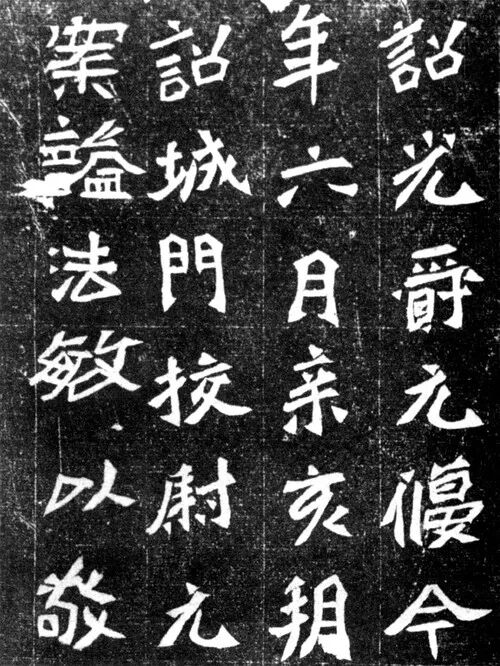 詔光爵元偃今
年六月辛亥朔
詔城門挍尉元
案謚法敏以敬